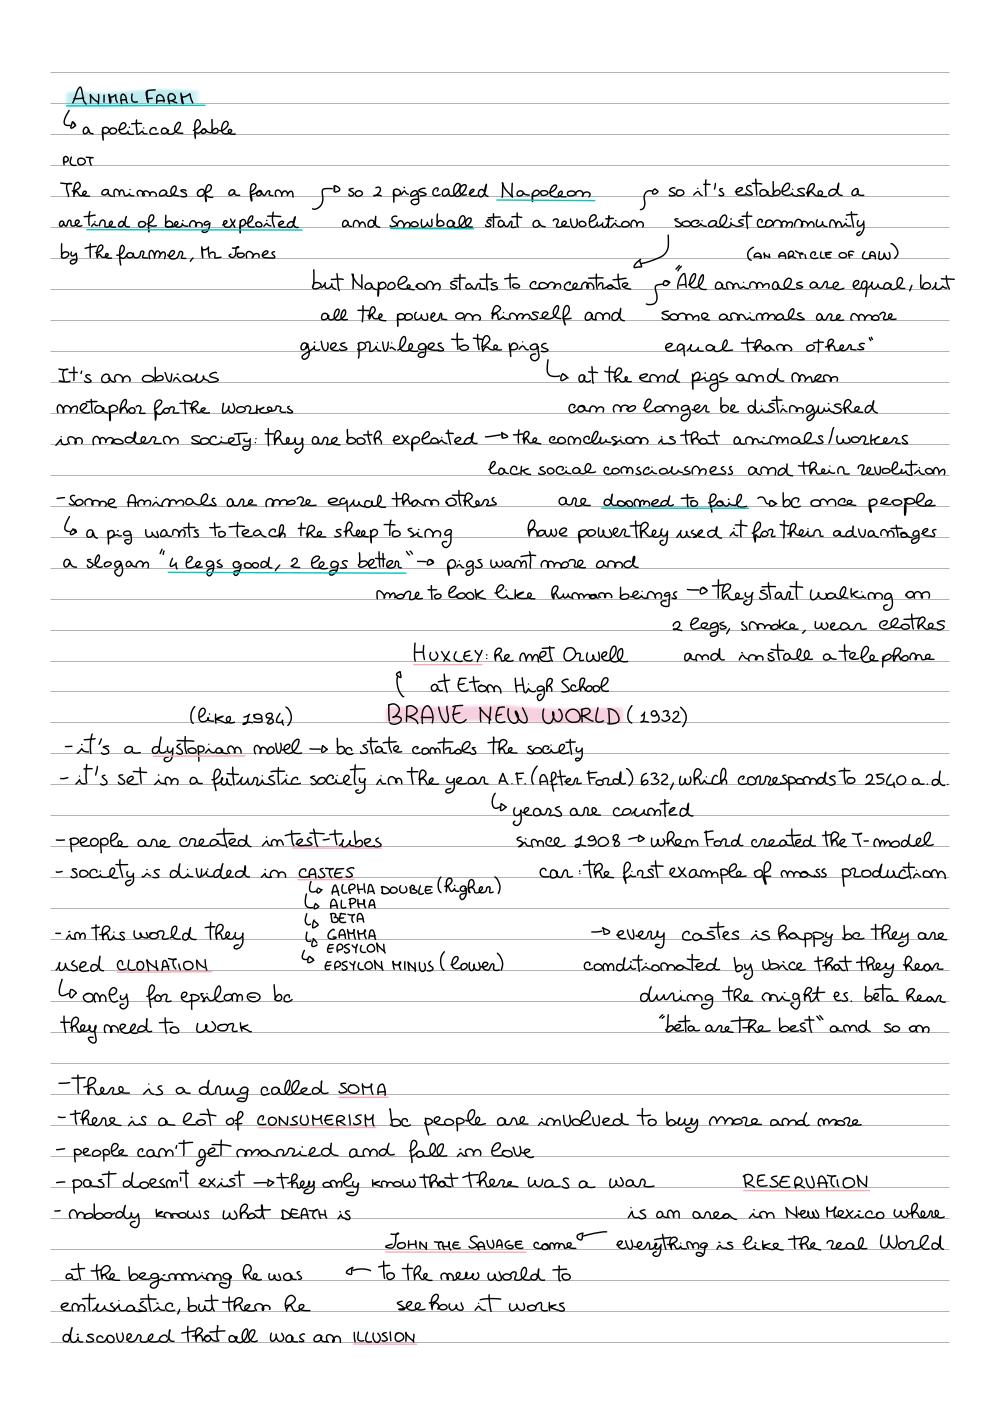 ANIMAL FARM
↳ a political fable
PLOT
The animals of a farm → so 2 pigs called Napoleon → so it's established a
are tired of being exploited and Snowball start a revolution socialist community
by the farmer, Mr Jones (AN ARTICLE OF LAW)
but Napoleon starts to concentrate → "All animals are equal, but
all the power on himself and some animals are more
gives privileges to the pigs equal than others"
It's an obvious ↳ at the end pigs and men
metaphor for the workers can no longer be distinguished
in modern society: they are both exploited → the conclusion is that animals/workers
lack social consciousness and their revolution
-Some Animals are more equal than others are doomed to fail → bc once people
↳ a pig wants to teach the sheep to sing have power they used it for their advantages
a slogan "4 legs good, 2 legs better" → pigs want more and
more to look like human beings → they start walking on
2 legs, smoke, wear clothes
HUXLEY: he met Orwell and install a telephone
at Eton High School
(like 1984) BRAVE NEW WORLD (1932)
-it's a dystopian novel → bc state controls the society
- it's set in a futuristic society in the year A.F. (After Ford) 632, which corresponds to 2540 a.d.
↳ years are counted
-people are created in test-tubes since 1908 → when Ford created the T-model
- society is divided in CASTES car: the first example of mass production
↳ ALPHA DOUBLE (higher)
↳ ALPHA
↳ BETA
- in this world they ↳ GAMMA → every castes is happy bc they are
↳ EPSYLON
used CLONATION ↳ EPSYLON MINUS (lower) conditionated by voice that they hear
↳ only for epsilon ⊖ bc during the night es. beta hear
they need to work "beta are the best" and so on
-There is a drug called SOMA
-there is a lot of CONSUMERISM bc people are involved to buy more and more
- people can't get married and fall in love
- past doesn't exist → they only know that there was a war RESERVATION
- nobody knows what DEATH is is an area in New Mexico where
JOHN THE SAVAGE came ← everything is like the real World
at the beginning he was ← to the new world to
entusiastic, but then he see how it works
discovered that all was an ILLUSION